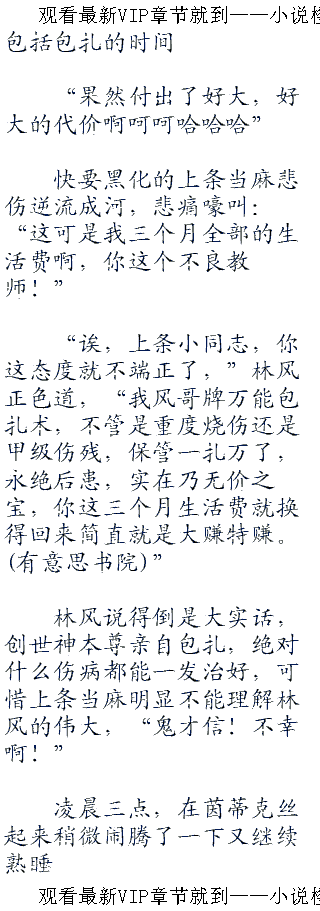 观看最新VIP章节就到——小说检
包括包扎的时间
“果然付出了好大，好
大的代价啊呵呵哈哈哈”
快要黑化的上条当麻悲
伤逆流成河，悲痛嚎叫：
“这可是我三个月全部的生
活费啊，你这个不良教
师！”
“诶，上条小同志，你
这态度就不端正了，”林风
正色道，“我风哥牌万能包
扎术，不管是重度烧伤还是
甲级伤残，保管一扎万了，
永绝后患，实在乃无价之
宝，你这三个月生活费就换
得回来简直就是大赚特赚。
(有意思书院)”
林风说得倒是大实话，
创世神本尊亲自包扎，绝对
什么伤病都能一发治好，可
惜上条当麻明显不能理解林
风的伟大，“鬼才信！不幸
啊！”
凌晨三点，在茵蒂克丝
起来稍微闹腾了一下又继续
熟睡
观看最新VIP章节就到——小说检